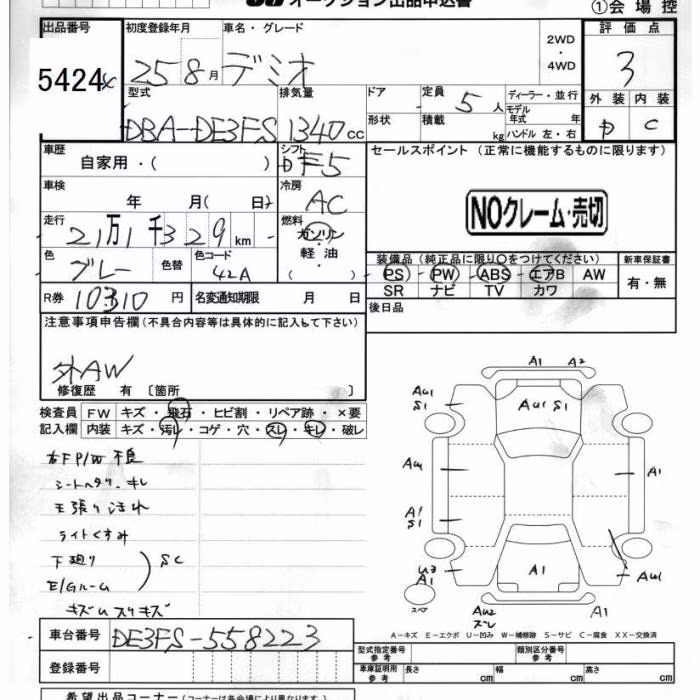 オークション出品申込書
①会場控
出品番号 初度登録年月 車名・グレード 2WD・4WD 評価点
5424 25 8月 デミオ 3
型式 排気量 ドア 定員 5人 ディーラー・並行 外装 内装
DBA-DE3FS 1340cc 形状 積載 kg モデル年式 年 ハンドル 左・右 D C
車歴 自家用・( ) シフト F5 セールスポイント (正常に機能するものに限ります)
車検 年 月( 日) 冷房 AC
NOクレーム・売切
走行 21万1千329km 燃料 ガソリン 軽・油 ( )
色 ブルー 色替 色コード 42A
装備品 (純正品に限り○をつけてください) 新車保証書
PS PW ABS エアB AW 有・無
SR ナビ TV カワ
R券 10310円 名変通知期限 月 日 後日品
注意事項申告欄 (不具合内容等は具体的に記入して下さい)
外AW
修復歴 有 〔箇所 〕
検査員 FW キズ・飛石・ヒビ割・リペア跡・×要
記入欄 内装 キズ・汚レ・コゲ・穴・スレ・キレ・破レ
右FP/W不良
シートヘタリ、キレ
天張り汚れ
ライトくすみ
下廻り
E/Gルーム
SC
キズUスリキズ
A1 A2
AU1 S1
AU1 S1
AU1
A1
A1 S1
U3 A1
A1
AU1
スペア
AU2 ズレ
A1
A-キズ E-エクボ U-凹み W-補修跡 S-サビ C-腐食 XX-交換済
車台番号 DE3FS-558223
型式指定番号 参考 類別区分番号 参考
登録番号
車庫証明用 参考 長さ cm 幅 cm 高さ cm
希望出品コーナー